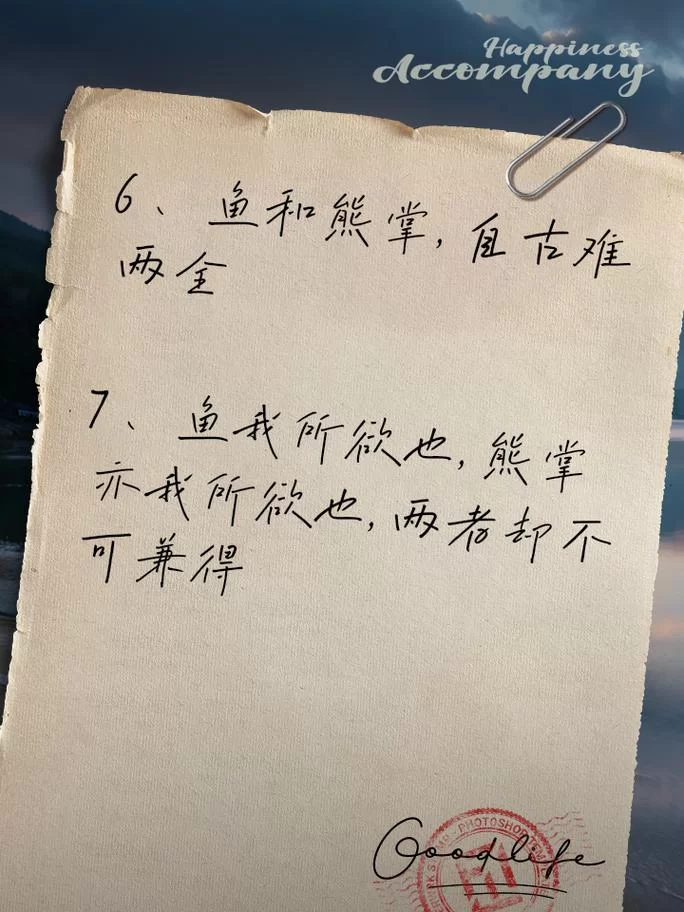 Happiness
Accompany
6、鱼和熊掌,自古难
两全
7、鱼我所欲也,熊掌
亦我所欲也,两者却不
可兼得
PHOTOSHOP
Goodlife